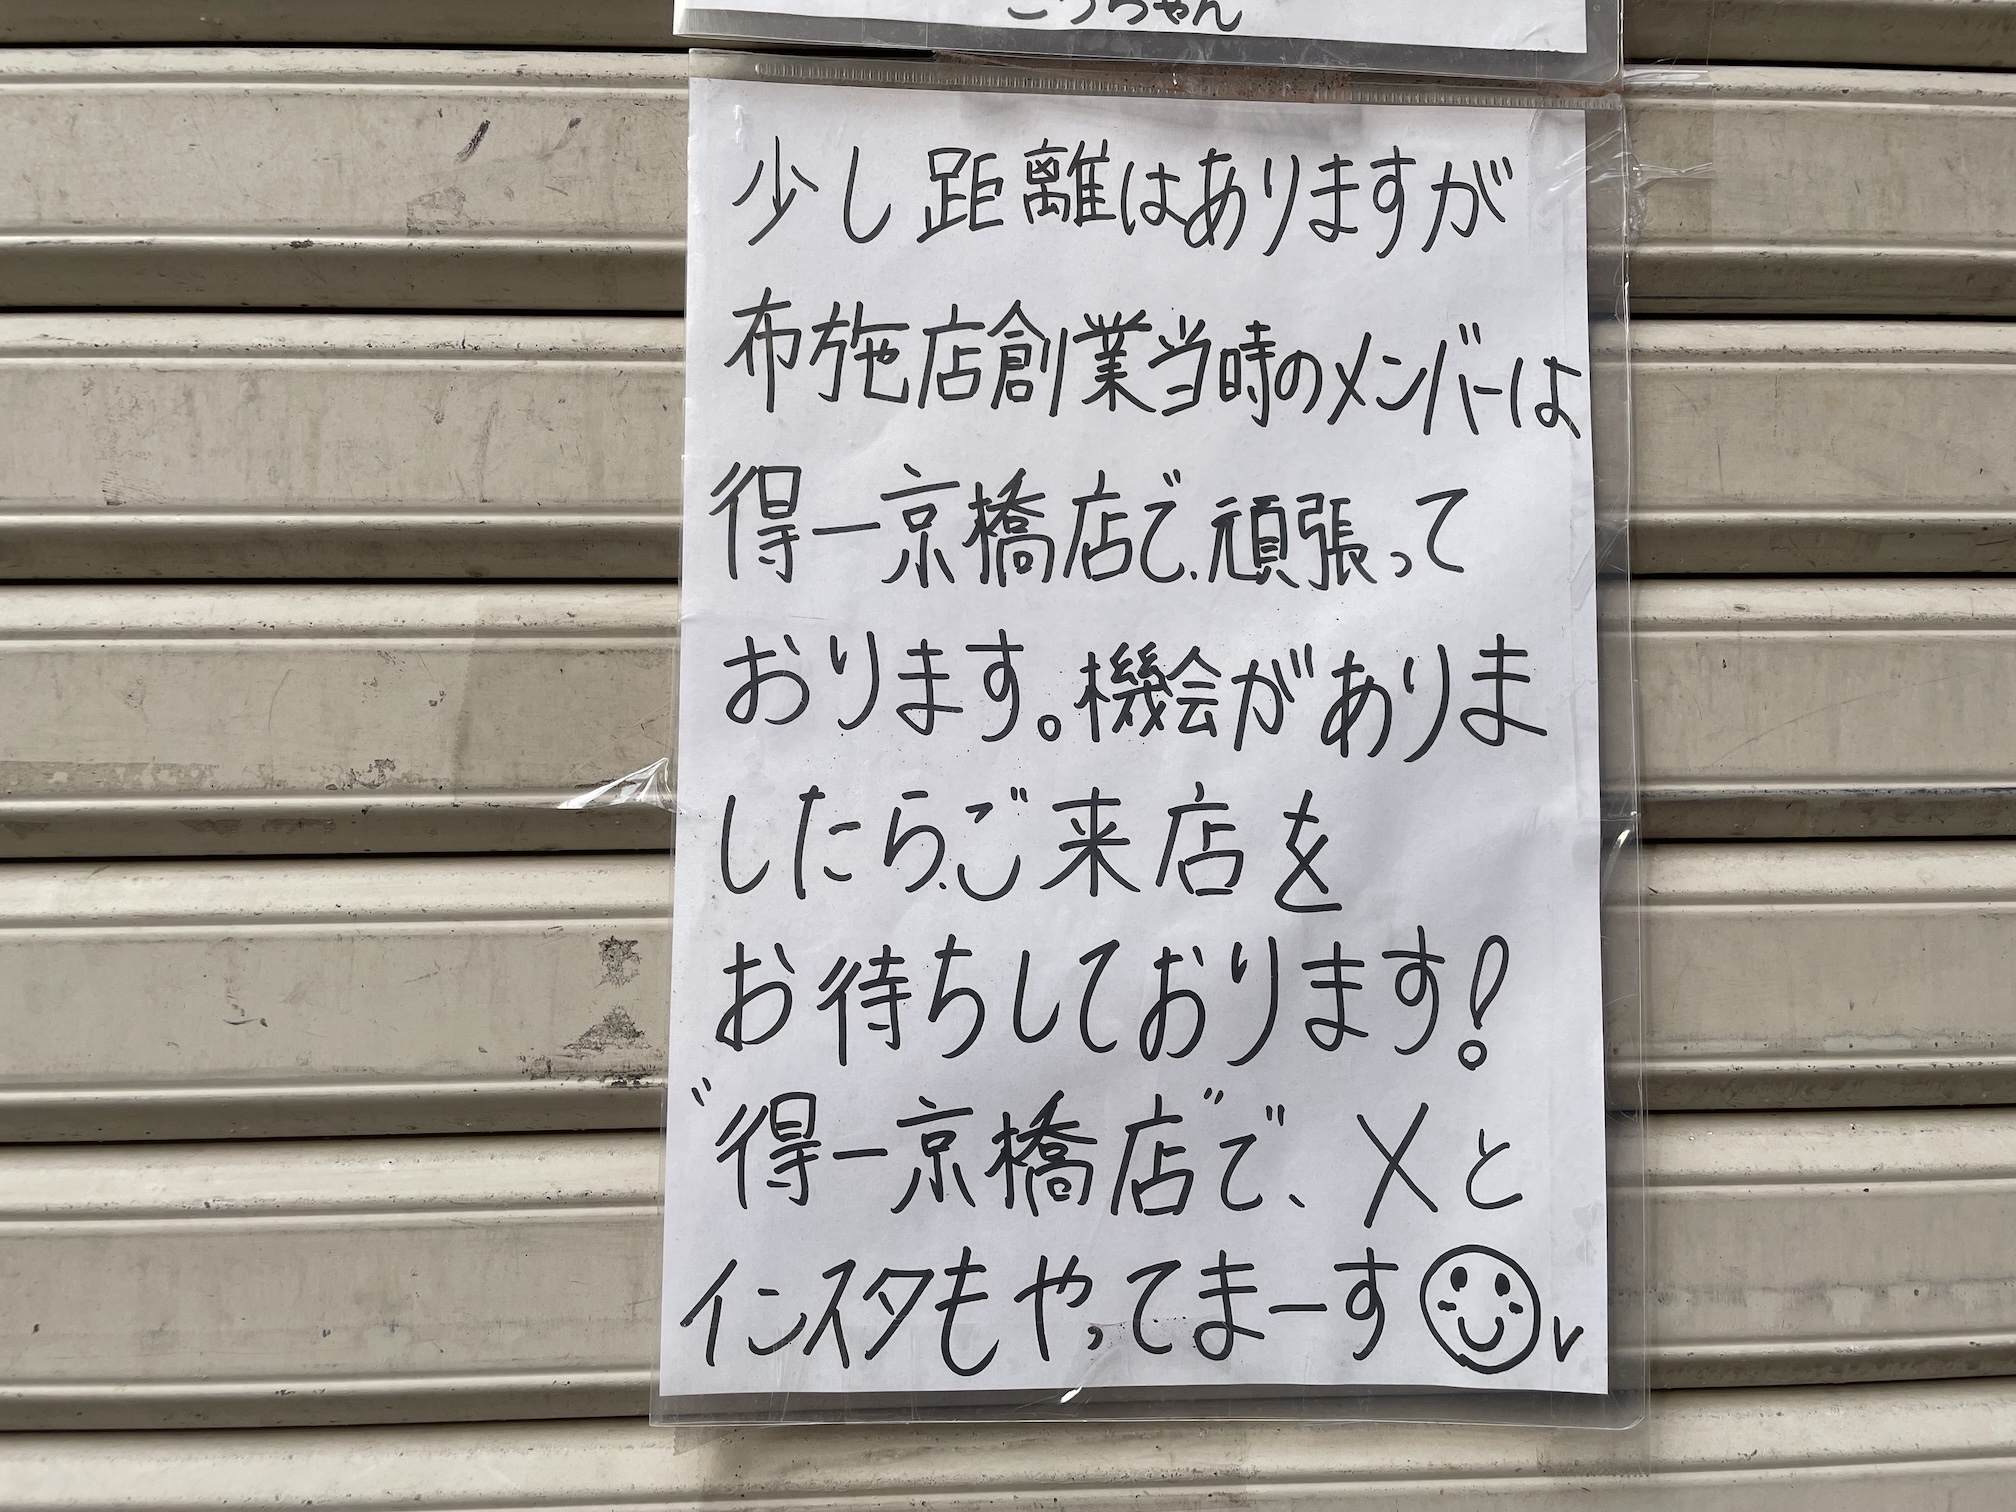 こうちゃん
少し距離はありますが
布施店創業当時のメンバーは
得一京橋店で、頑張って
おります。機会がありま
したら、ご来店を
お待ちしております!
"得一京橋店"で、Xと
インスタもやってまーす